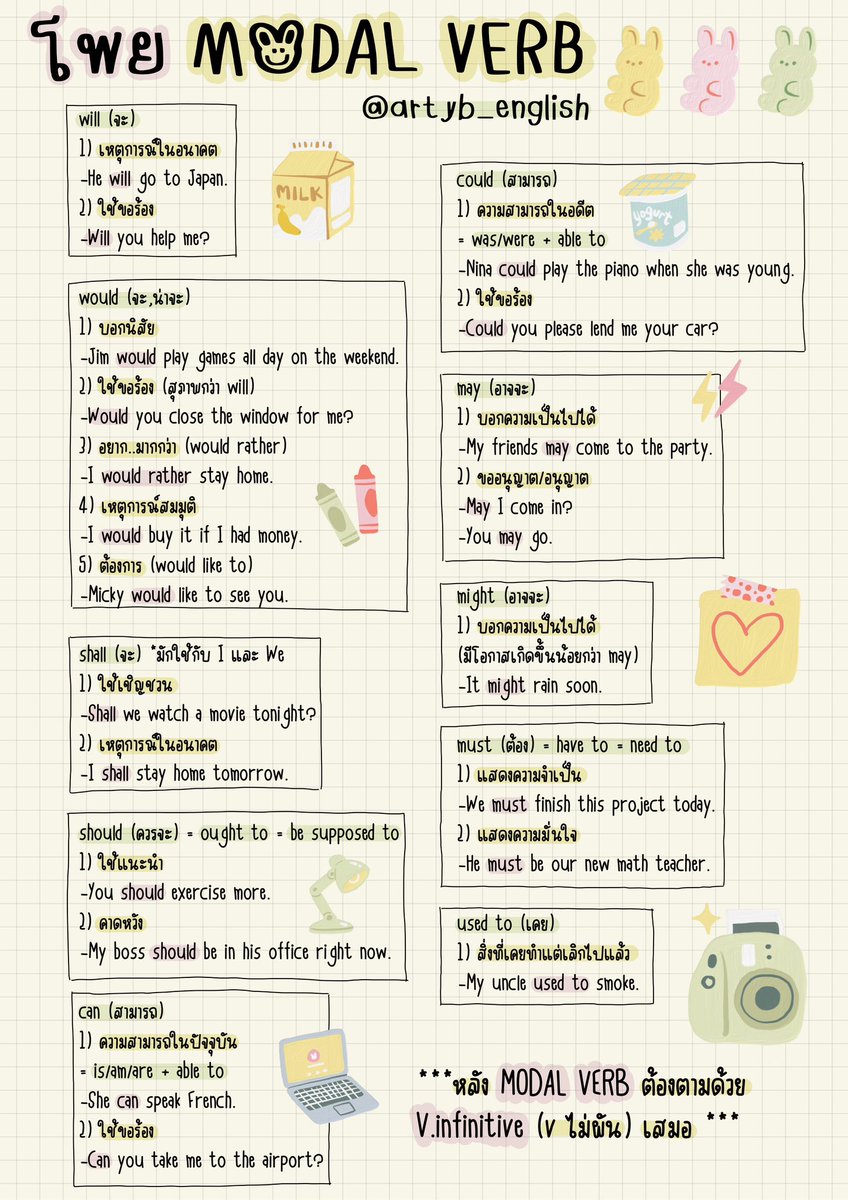 โพย MODAL VERB
@artyb_english
will (จะ)
1) เหตุการณ์ในอนาคต
-He will go to Japan.
2) ใช้ขอร้อง
-Will you help me?
MILK
would (จะ,น่าจะ)
1) บอกนิสัย
-Jim would play games all day on the weekend.
2) ใช้ขอร้อง (สุภาพกว่า will)
-Would you close the window for me?
3) อยาก..มากกว่า (would rather)
-I would rather stay home.
4) เหตุการณ์สมมุติ
-I would buy it if I had money.
5) ต้องการ (would like to)
-Micky would like to see you.
shall (จะ) *มักใช้กับ I และ We
1) ใช้เชิญชวน
-Shall we watch a movie tonight?
2) เหตุการณ์ในอนาคต
-I shall stay home tomorrow.
should (ควรจะ) = ought to = be supposed to
1) ใช้แนะนำ
-You should exercise more.
2) คาดหวัง
-My boss should be in his office right now.
can (สามารถ)
1) ความสามารถในปัจจุบัน
= is/am/are + able to
-She can speak French.
2) ใช้ขอร้อง
-Can you take me to the airport?
could (สามารถ)
1) ความสามารถในอดีต
= was/were + able to
-Nina could play the piano when she was young.
2) ใช้ขอร้อง
-Could you please lend me your car?
yogurt
may (อาจจะ)
1) บอกความเป็นไปได้
-My friends may come to the party.
2) ขออนุญาต/อนุญาต
-May I come in?
-You may go.
might (อาจจะ)
1) บอกความเป็นไปได้
(มีโอกาสเกิดขึ้นน้อยกว่า may)
-It might rain soon.
must (ต้อง) = have to = need to
1) แสดงความจำเป็น
-We must finish this project today.
2) แสดงความมั่นใจ
-He must be our new math teacher.
used to (เคย)
1) สิ่งที่เคยทำแต่เลิกไปแล้ว
-My uncle used to smoke.
***หลัง MODAL VERB ต้องตามด้วย
V.infinitive (v ไม่ผัน) เสมอ ***